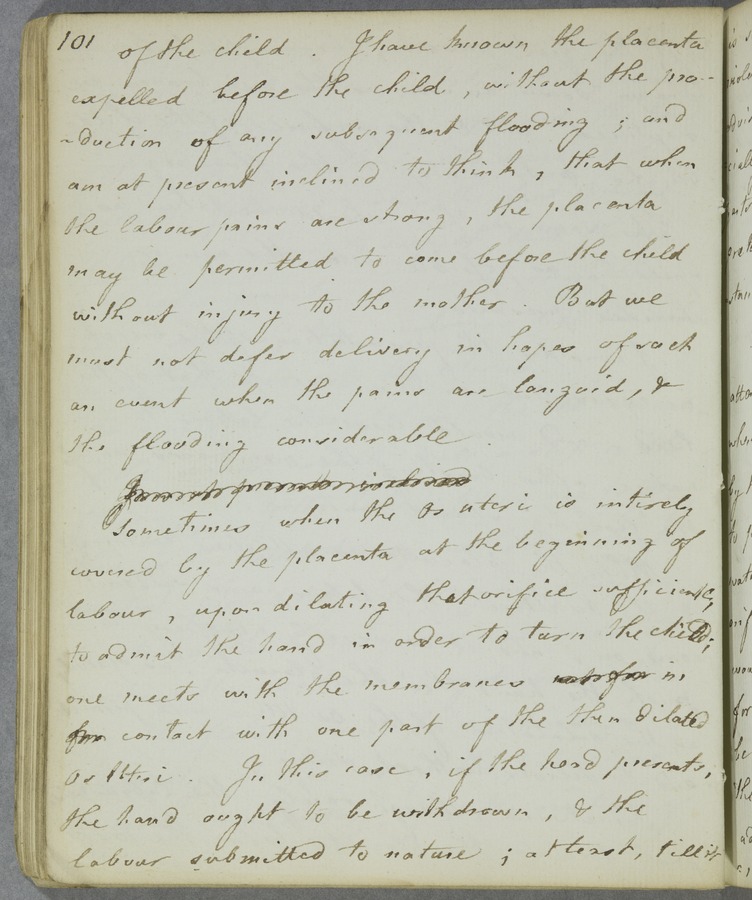 101
of the child. I have known the placenta
expelled before the child, without the pro-
-duction of any subsequent flooding; and
am at present inclined to think, that when
the labour pains are strong, the placenta
may be permitted to come before the child
without injury to the mother. But we
must not defer delivery in hopes of such
an event when the pains are languid, &
the flooding considerable.
Sometimes when the os uteri is intirely
covered by the placenta at the beginning of
labour, upon dilating that orifice sufficiently
to admit the hand in order to turn the child;
one meets with the membranes in
contact with one part of the then dilated
os uteri. In this case, if the head presents,
the hand ought to be withdrawn, & the
labour submitted to nature; at least, till it